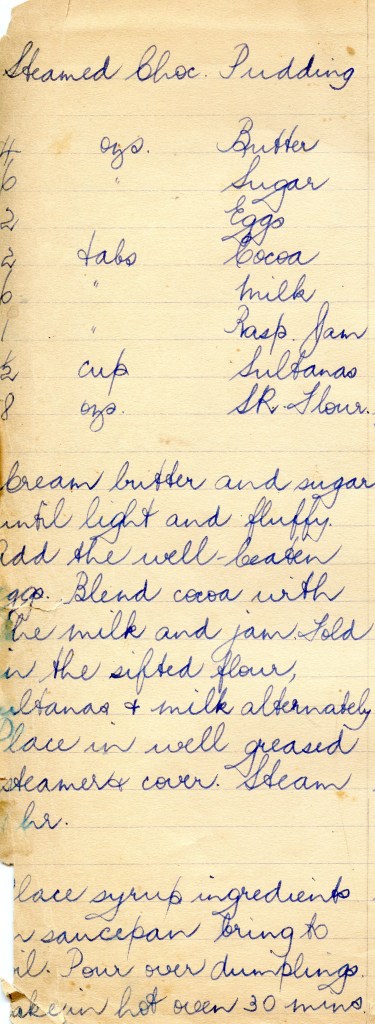 Steamed Choc. Pudding
4 ozs. Butter
6 " Sugar
2 Eggs
2 tabs Cocoa
6 " Milk
1 " Rasp. Jam
½ cup Sultanas
8 ozs. SR. Flour.
Cream butter and sugar
until light and fluffy.
Add the well-beaten
eggs. Blend cocoa with
the milk and jam. Fold
in the sifted flour,
sultanas & milk alternately
Place in well greased
steamer & cover. Steam
hr.
Place syrup ingredients
in saucepan bring to
boil. Pour over dumplings.
Bake in hot oven 30 mins.